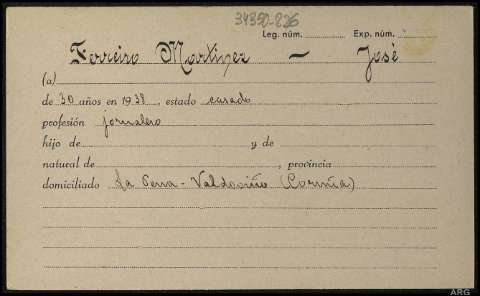 34350-826
Leg. núm. Exp. núm.
Ferreiro Martinez — José
(a)
de 30 años en 1938, estado casado
profesión jornalero
hijo de y de
natural de , provincia
domiciliado La Pena - Valdoviño (Coruña)
ARG